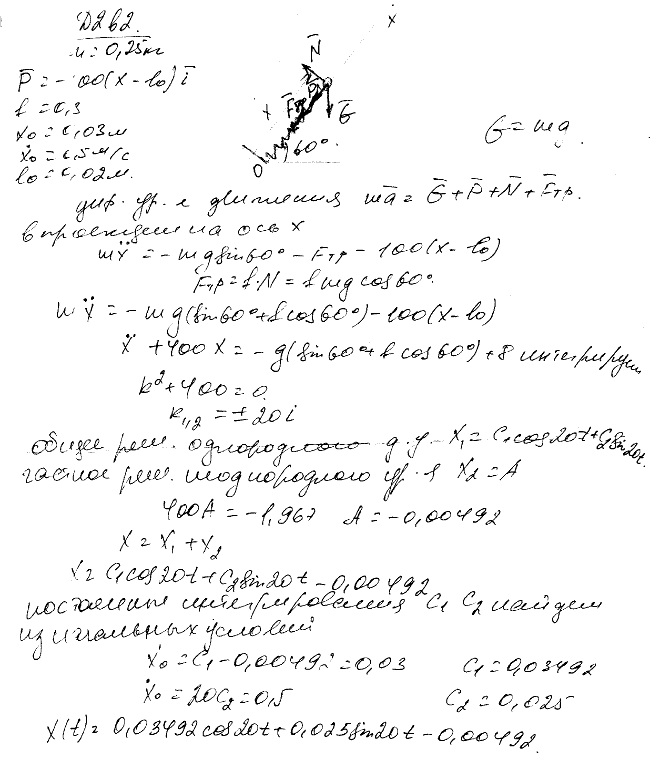 D262.
m = 0,25кг
P̄ = -100(x - l₀) ī
f = 0,3
x₀ = 0,03 м
ẋ₀ = 0,5 м/с
l₀ = 0,02 м.
x
N̄
P̄
F̄тр
x
Ḡ
60°
O
G = mg.
диф. ур. движения mā = Ḡ + P̄ + N̄ + F̄тр.
в проекции на ось x
mẍ = -mg sin60° - Fтр - 100(x - l₀)
Fтр = f·N = f mg cos60°.
mẍ = -mg(sin60° + f cos60°) - 100(x - l₀)
ẍ + 400x = -g(sin60° + f cos60°) + 8 интегрируем
k² + 400 = 0.
k₁,₂ = ± 20i
общее реш. однородного д.у - x₁ = C₁cos20t + C₂sin20t.
частное реш. неоднородного ур-я x₂ = A
400A = -1,967 A = -0,00492
x = x₁ + x₂
x = C₁cos20t + C₂sin20t - 0,00492
постоянные интегрирования C₁ C₂ найдем
из начальных условий
x₀ = C₁ - 0,00492 = 0,03 C₁ = 0,03492
ẋ₀ = 20C₂ = 0,5 C₂ = 0,025
x(t) = 0,03492cos20t + 0,025sin20t - 0,00492.